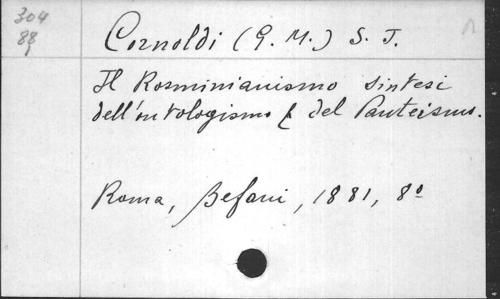 304
88
1
Cornoldi (G. M.) S. J.
Il Rosminianismo sintesi
dell'ontologismo e del Panteismo.
Roma, Befani, 1881, 8°